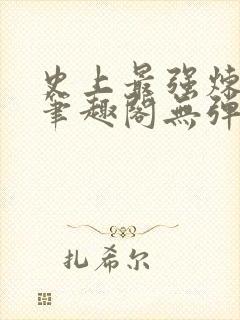 史上最强炼
笔趣阁无弹
扎希尔